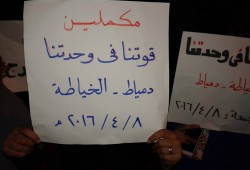 مكملين
قوتنا فى وحدتنا
دمياط - الخياطة
٢٠١٦/٤/٨ م
فى وحدتنا
دمياط
٢٠١٦/٤/٨